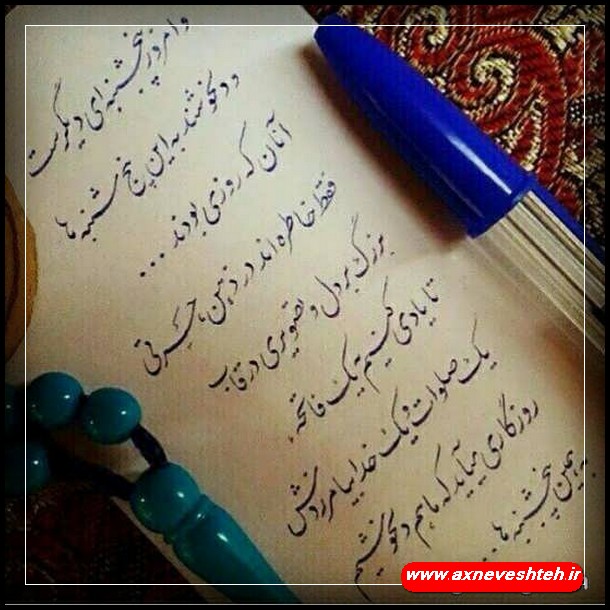 و امروز پنجشنبه ای دیگرست
و دلخوشند به این پنج شنبه ها
آنان که روزی بودند ...
فقط خاطره اند در ذهن، حسرتی
بزرگ بر دل و تصویری در قاب
تا یادی کنیم به یک فاتحه،
یک صلوات و یک خدا بیامرزدش
روزگاری میآید که ما هم دلخوشیم
به همین پنجشنبه ها...
www.axneveshteh.ir